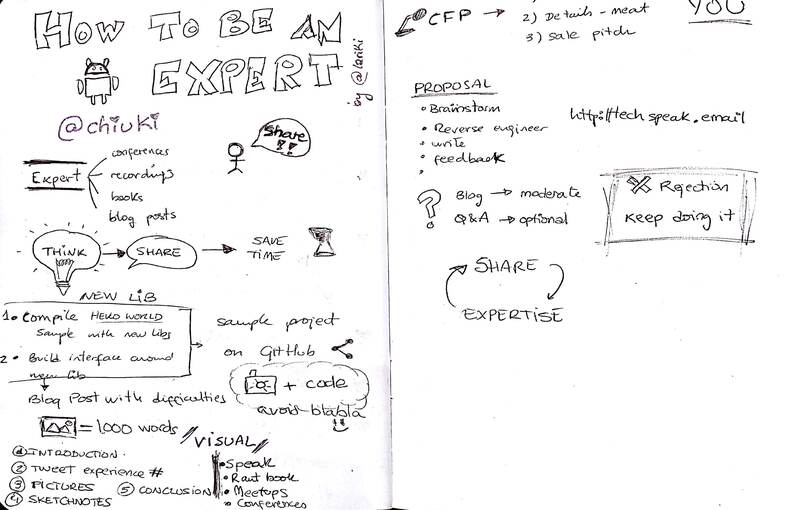 How To BE AN
EXPERT
by @lariki
@chiuki
Share
!!
Expert
conferences
recordings
books
blog posts
THINK
SHARE
SAVE
TIME
NEW LIB
1. Compile HELLO WORLD
Sample with new libs
2. Build interface around
new lib
sample project
on GitHub
Blog Post with difficulties
+ code
avoid blabla
= 1,000 words
VISUAL
1 INTRODUCTION.
2 Tweet experience #
3 PICTURES
4 SKETCHNOTES
5 CONCLUSION
• Speak
• Rant book
• Meetups
• Conferences
YOU
CFP → 2) Details - meat
3) Sale pitch
PROPOSAL
• Brainstorm
• Reverse engineer
• write
• feedback
http://techspeak.email
? Blog → moderate
Q&A → optional
Rejection
Keep doing it
SHARE
EXPERTISE